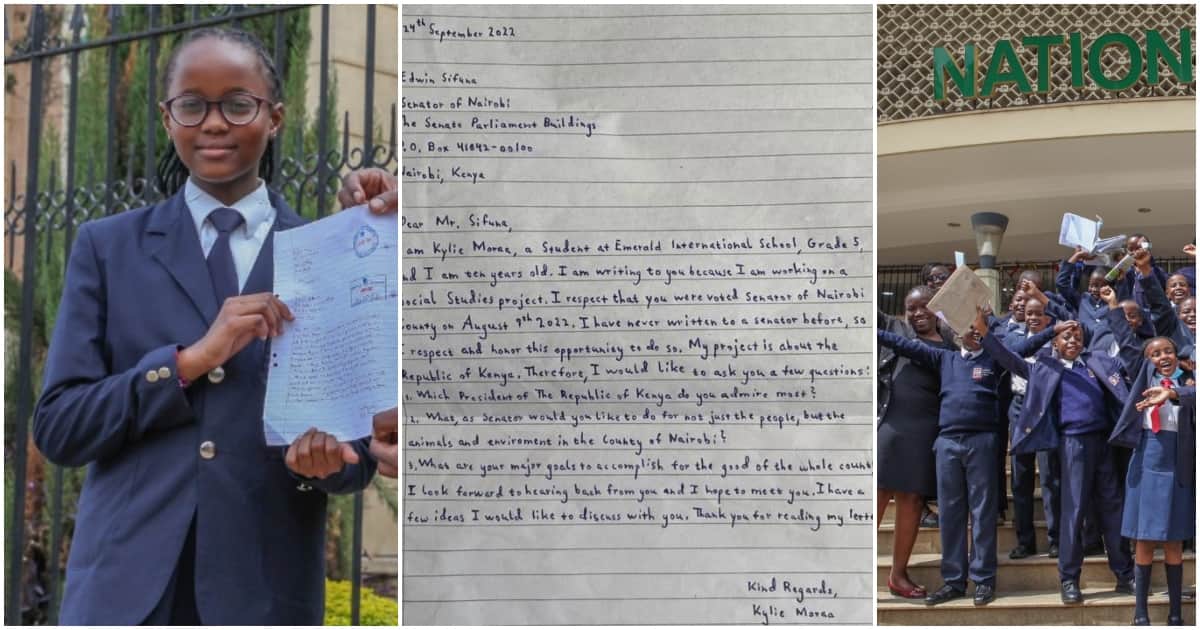 24th September 2022
Edwin Sifuna
Senator of Nairobi
The Senate Parliament Buildings
P.O. Box 41842-00100
Nairobi, Kenya
Dear Mr. Sifuna,
I am Kylie Moraa, a Student at Emerald International School, Grade 5,
and I am ten years old. I am writing to you because I am working on a
Social Studies project. I respect that you were voted Senator of Nairobi
County on August 9th 2022. I have never written to a senator before, so
I respect and honor this opportunity to do so. My project is about the
Republic of Kenya. Therefore, I would like to ask you a few questions:
1. Which President of The Republic of Kenya do you admire most?
2. What, as Senator would you like to do for not just the people, but the
animals and enviroment in the County of Nairobi?
3. What are your major goals to accomplish for the good of the whole county
I look forward to hearing back from you and I hope to meet you. I have a
few ideas I would like to discuss with you. Thank you for reading my lette
Kind Regards,
Kylie Moraa
NATION